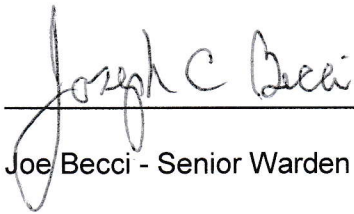 Joseph C Becci
Joe Becci - Senior Warden